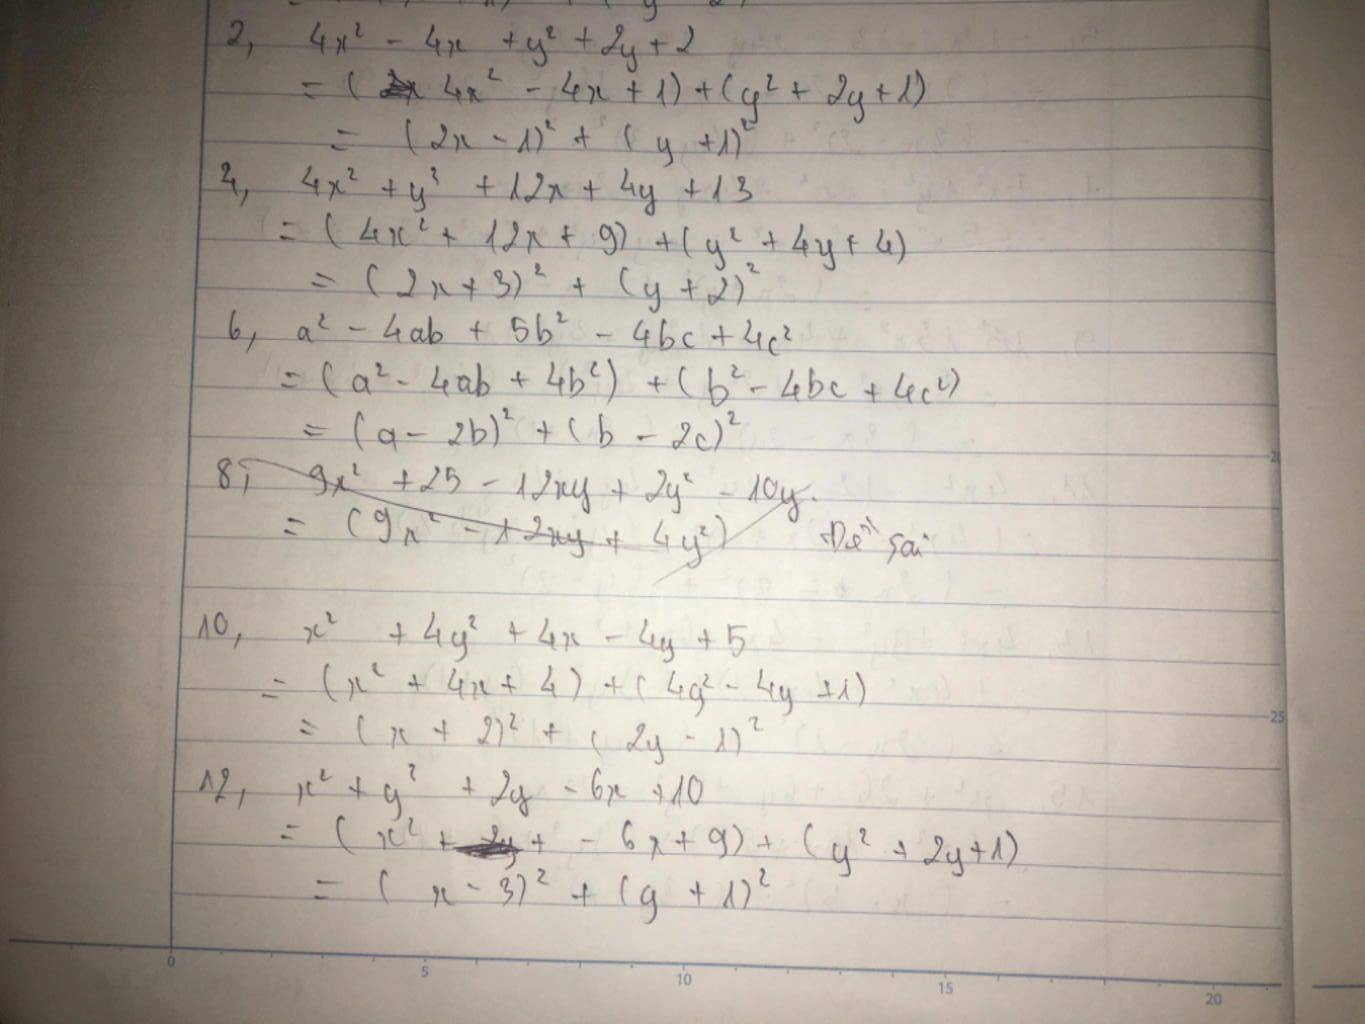 2, 4x² - 4x + y² + 2y + 2
= ( 4x² - 4x + 1) + (y² + 2y + 1)
= (2x - 1)² + (y + 1)²
4, 4x² + y² + 12x + 4y + 13
= (4x² + 12x + 9) + (y² + 4y + 4)
= (2x + 3)² + (y + 2)²
6, a² - 4ab + 5b² - 4bc + 4c²
= (a² - 4ab + 4b²) + (b² - 4bc + 4c²)
= (a - 2b)² + (b - 2c)²
8, 9x² + 25 - 12xy + 2y² - 10y.
= (9x² - 12xy + 4y²) Đề sai
10, x² + 4y² + 4x - 4y + 5
= (x² + 4x + 4) + (4y² - 4y + 1)
= (x + 2)² + (2y - 1)²
12, x² + y² + 2y - 6x + 10
= (x² + + - 6x + 9) + (y² + 2y + 1)
= (x - 3)² + (y + 1)²
20
25
0 5 10 15 20